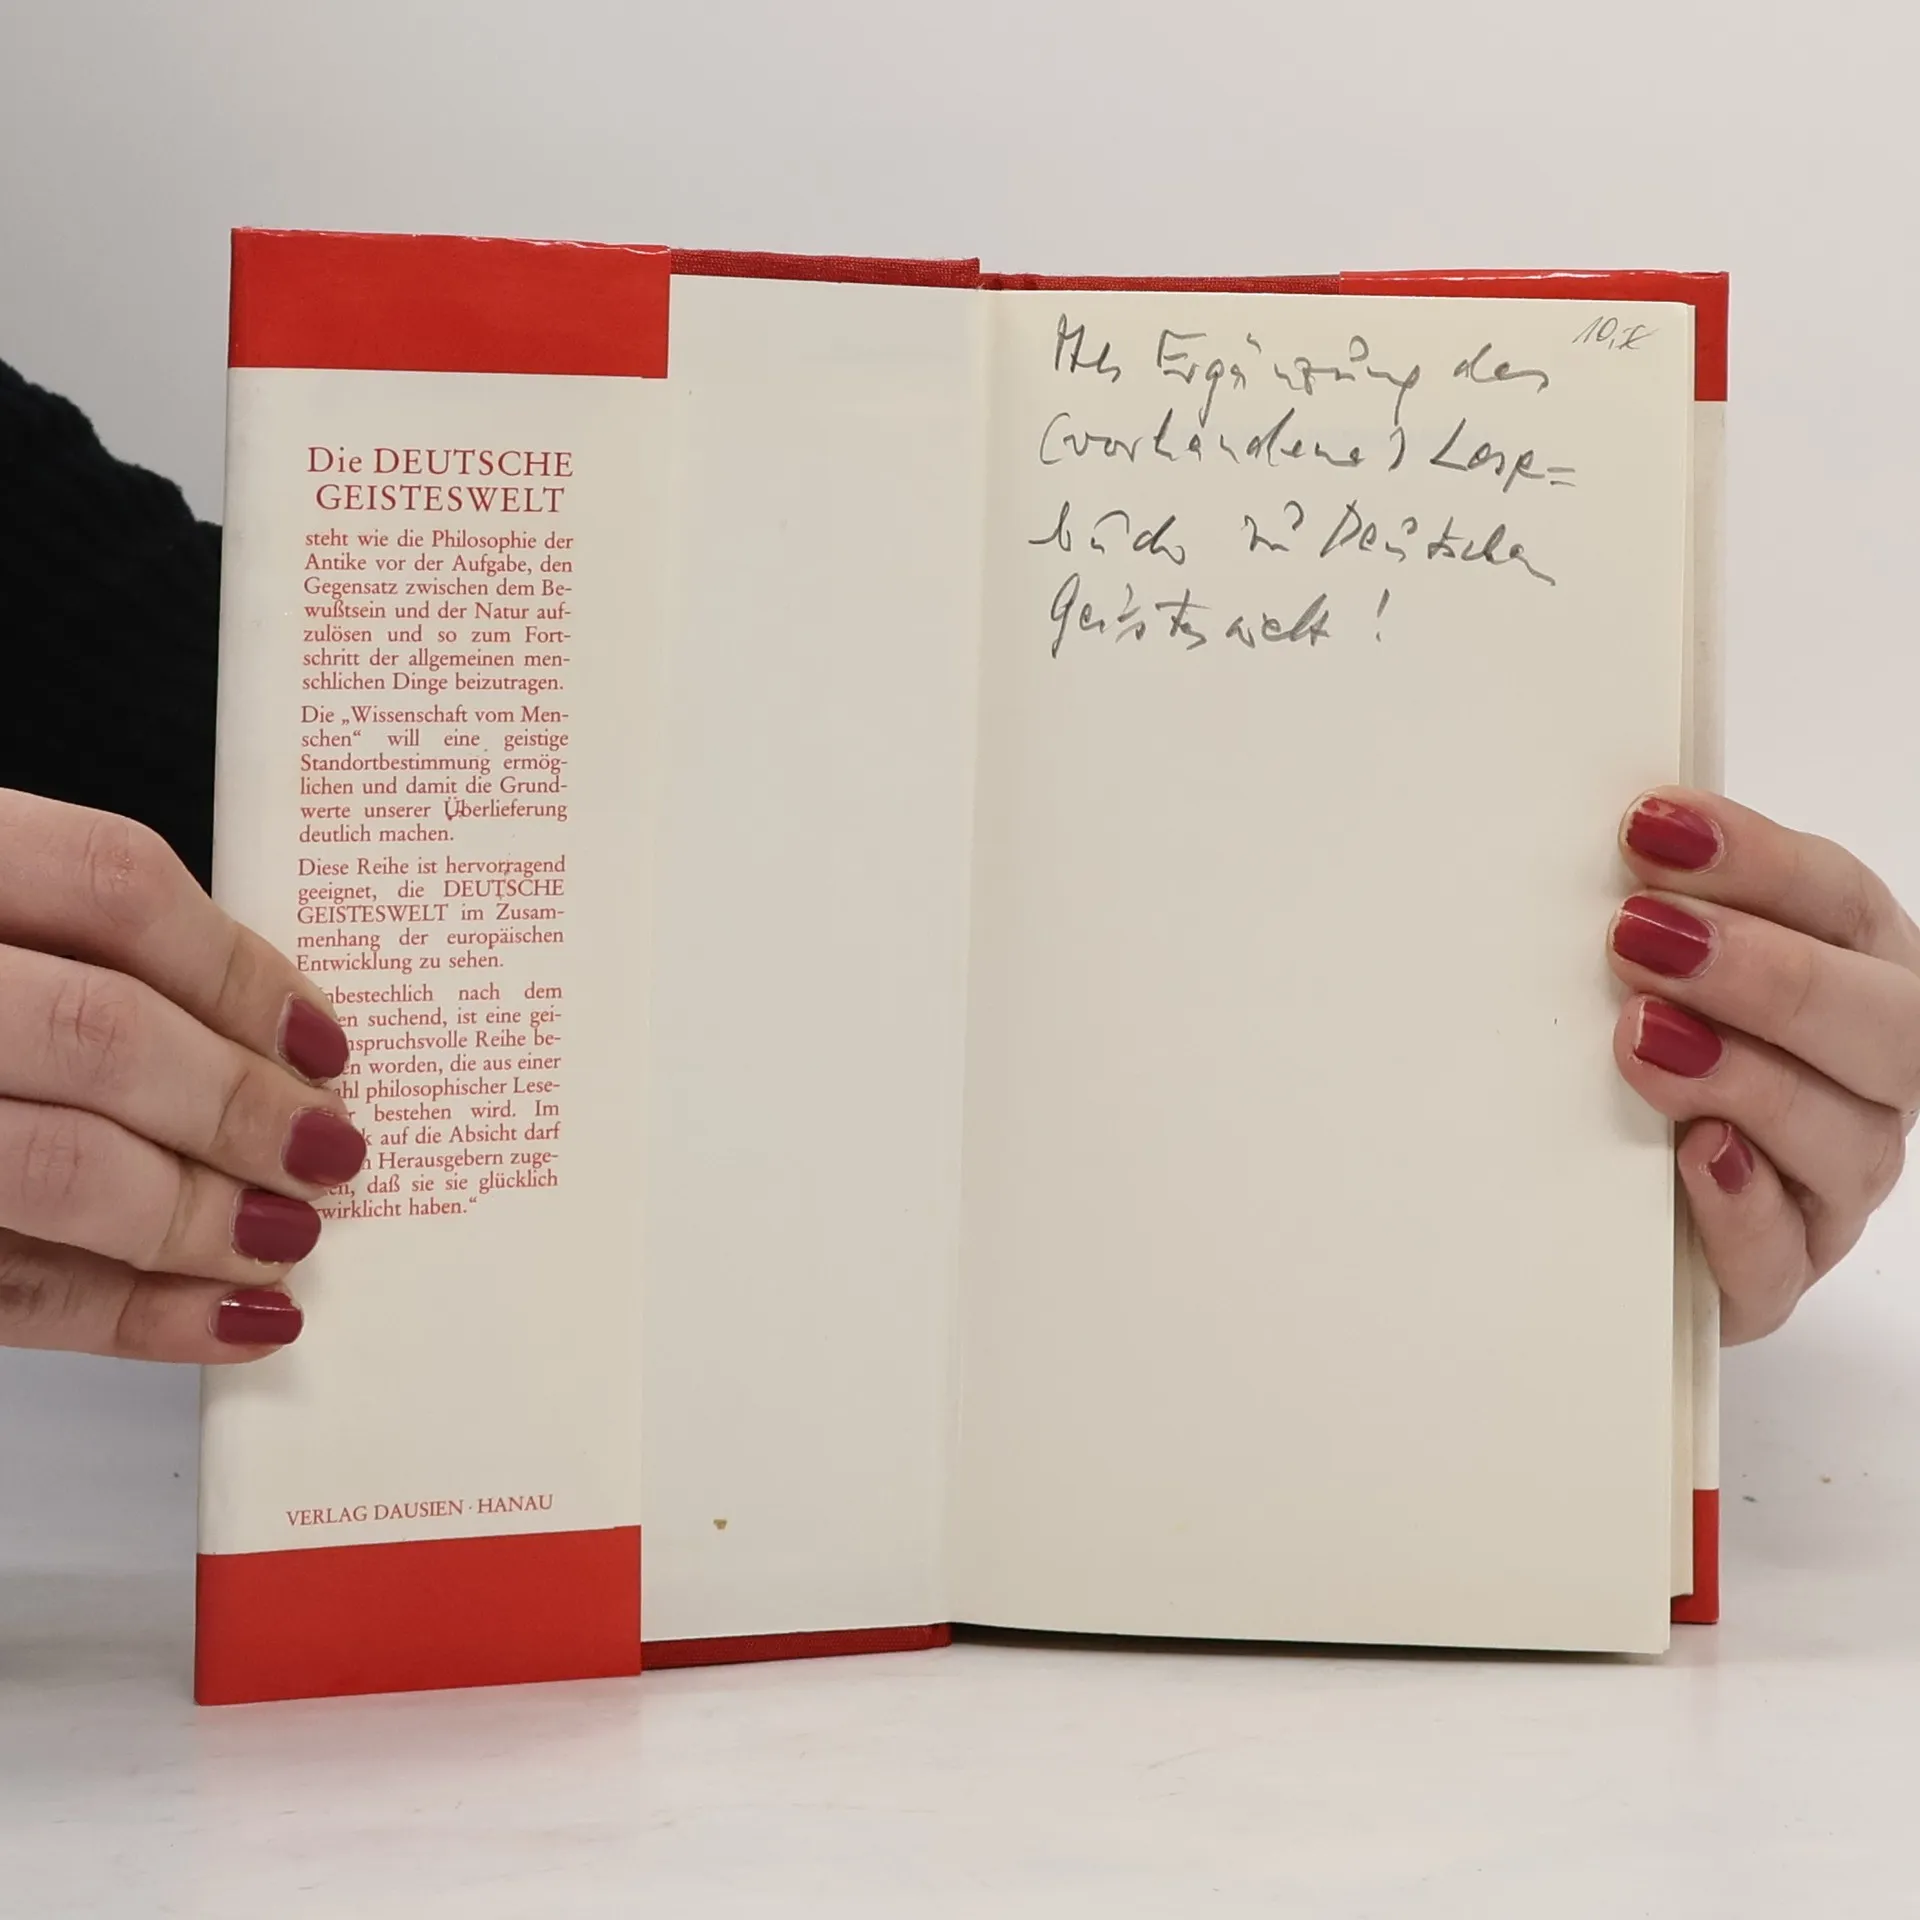 Die DEUTSCHE
GEISTESWELT
steht wie die Philosophie der
Antike vor der Aufgabe, den
Gegensatz zwischen dem Be-
wußtsein und der Natur auf-
zulösen und so zum Fort-
schritt der allgemeinen men-
schlichen Dinge beizutragen.
Die „Wissenschaft vom Men-
schen“ will eine geistige
Standortbestimmung ermög-
lichen und damit die Grund-
werte unserer Überlieferung
deutlich machen.
Diese Reihe ist hervorragend
geeignet, die DEUTSCHE
GEISTESWELT im Zusam-
menhang der europäischen
Entwicklung zu sehen.
nbestechlich nach dem
en suchend, ist eine gei-
nspruchsvolle Reihe be-
en worden, die aus einer
ahl philosophischer Lese-
r bestehen wird. Im
k auf die Absicht darf
n Herausgebern zuge-
en, daß sie sie glücklich
wirklicht haben.“
VERLAG DAUSIEN · HANAU
10,
Als Ergänzung des
(vorhandene) Lese=
buchs zur Deutschen
Geisteswelt!